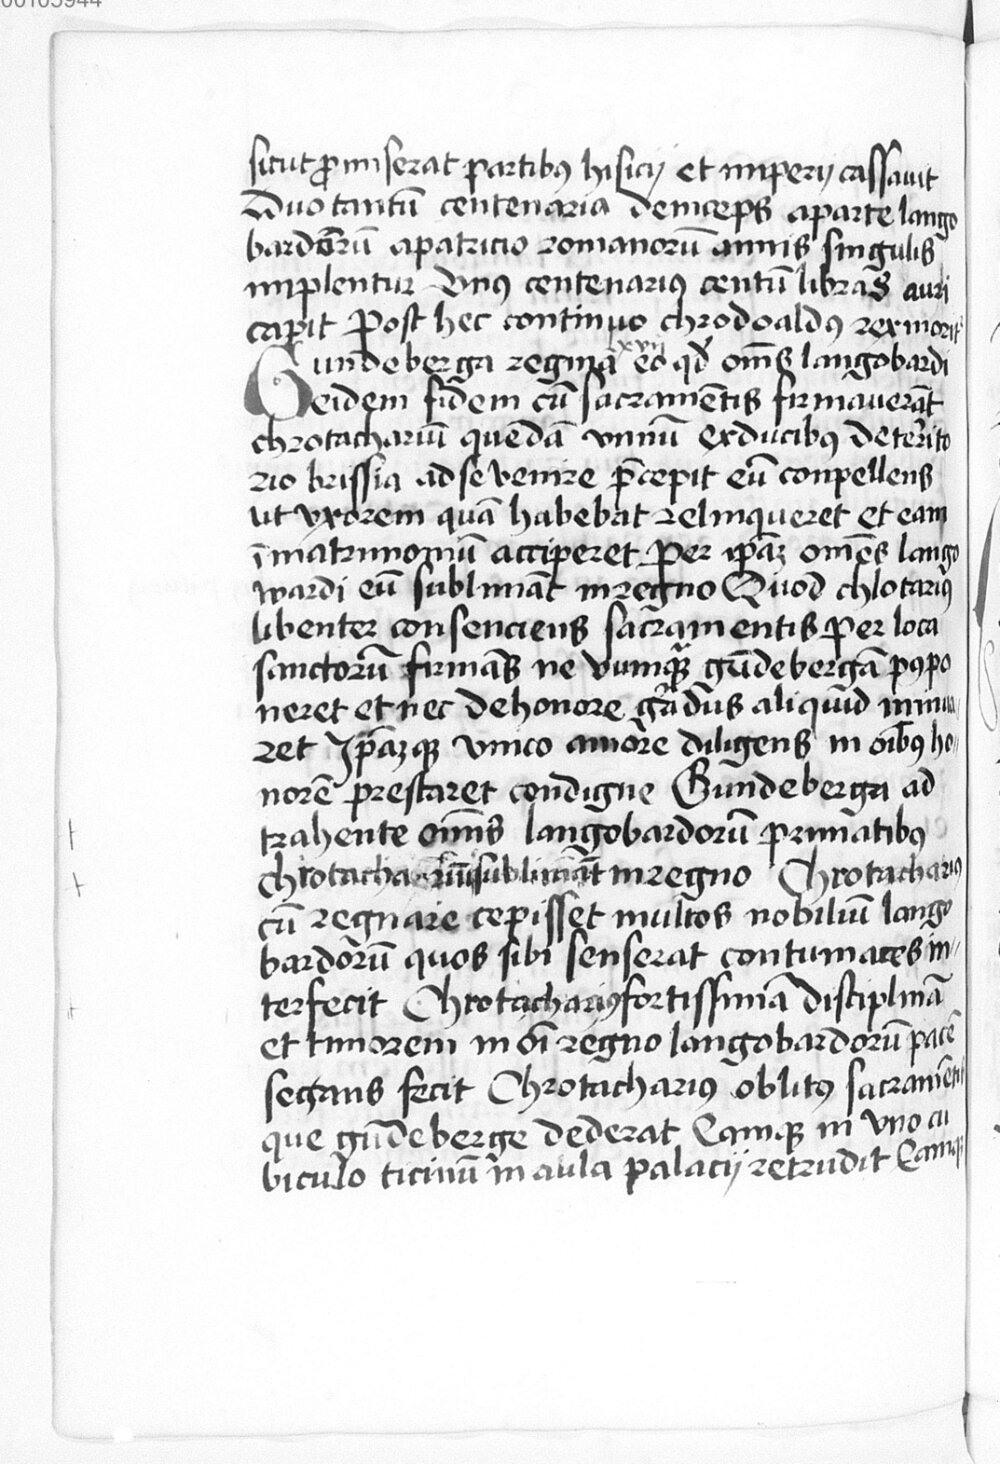 00105944
sicut promiserat partibꝯ hisicij et imperij cassauit
Duo tantū centenaria deinceps aparte lango
bardorū apatricio romanorū annis singulis
implentur Vnꝯ centenariꝯ centū libras auri
capit Post hec continuo chrodoaldꝯ rex morit᷑
lxvij
Gundeberga regina eo qđ om̄s langobardi
eidem fidem cū sacramētis firmauerāt
chrotachariū quēdā vnnū exducibꝯ deterito
rio brissia ad se venire p̄cepit eū conpellens
ut vxorem quā habebat relinqueret et eam
ī matrimoniū acciperet Per ip̄aꝫ om̄es lango
wardi eū sublimāt in regno Quod chlotariꝯ
libenter consenciens sacramentis per loca
sanctorū firmās ne vumqꝫ gūdebergā pꝯpo
neret et nec dehonore gradus aliquid minua
ret Ip̄aꝫqꝫ vnico amore diligens in oībꝯ ho
norē prestaret condigne Gundeberga ad
trahente om̄is langobardorū primatibꝯ
chrotachariū sublimāt in regno Chrotachariꝯ
cū regnare cepisset multos nobiliū lango
bardorū quos sibi senserat contumaces in
terfecit Chrotachariꝯ fortissimā disciplinā
et timorem in oī regno langobardorū pacē
segans fecit Chrotachariꝯ oblitꝯ sacramētis
que gūdeberge dederat Eamqꝫ in vno cu
biculo ticinū in aula palacij retrudit Eamqꝫ